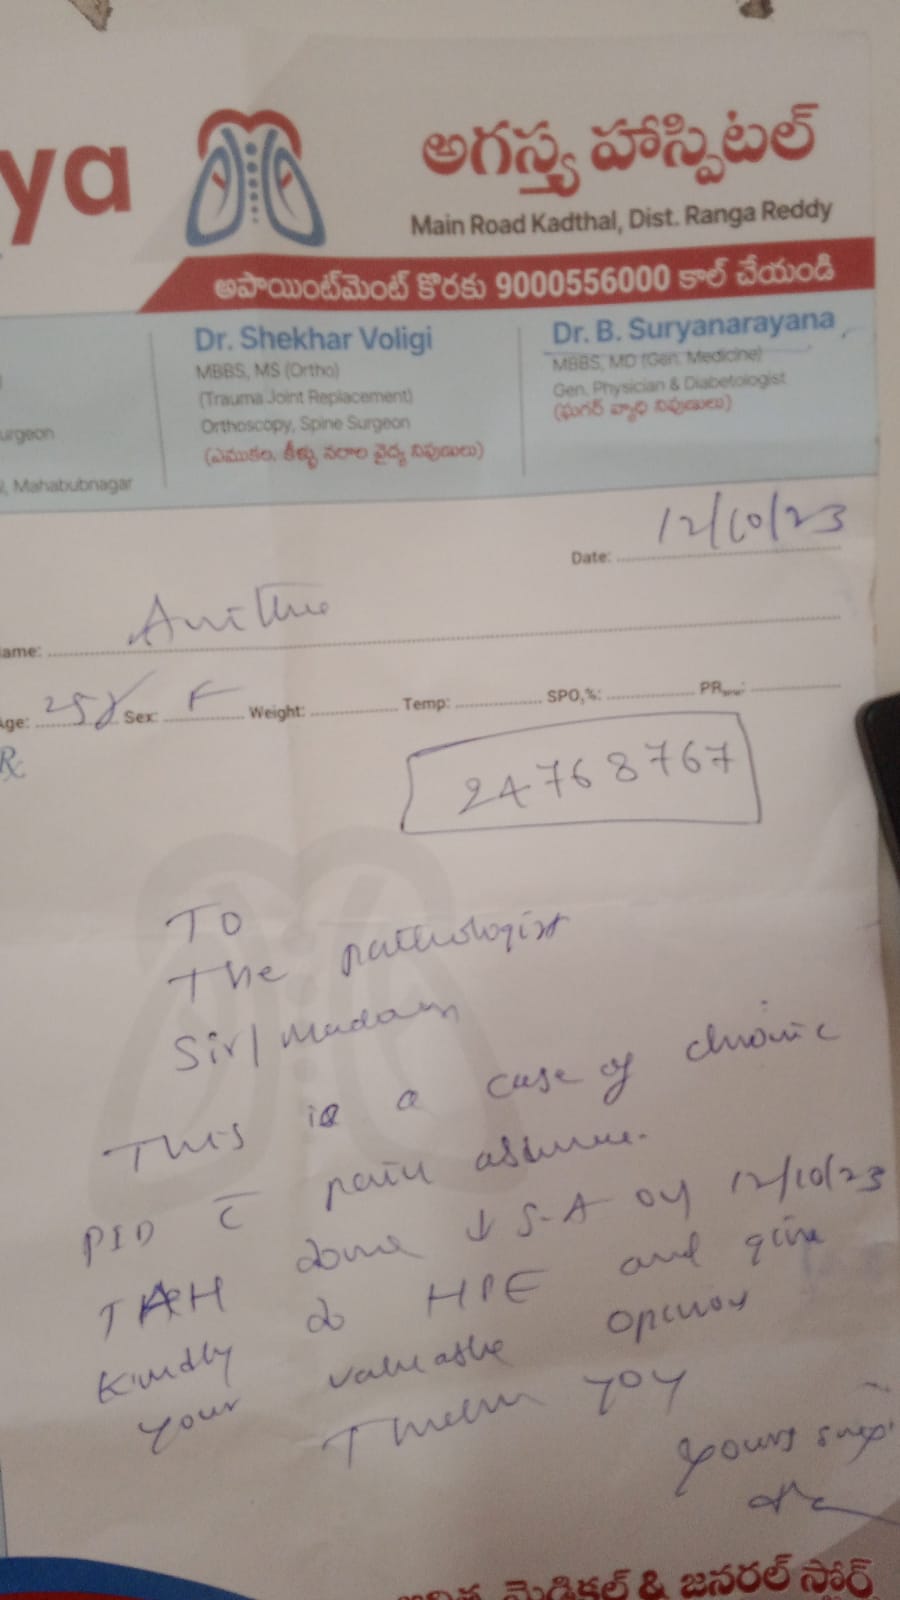 ya
అగస్త్య హాస్పిటల్
Main Road Kadthal, Dist. Ranga Reddy
అపాయింట్‌మెంట్ కొరకు 9000556000 కాల్ చేయండి
Dr. Shekhar Voligi
MBBS, MS (Ortho)
(Trauma Joint Replacement)
Orthoscopy, Spine Surgeon
(ఎముకల, కీళ్ళు నరాల వైద్య నిపుణులు)
Dr. B. Suryanarayana
MBBS, MD (Gen. Medicine)
Gen. Physician & Diabetologist
(షుగర్ వ్యాధి నిపుణులు)
urgeon
, Mahabubnagar
Date: 12/10/23
ame:
Age: 25y Sex: F Weight: Temp: SPO2%: PR
Rx
24768767
To
The pathologist
Sir/Madam
This is a case of chronic
PID c̄ pain
TAH done ↓ S-A on 12/10/23
Kindly do HPE and give
your valuable opinion
Thank you
Yours
మెడికల్ & జనరల్ స్టోర్స్